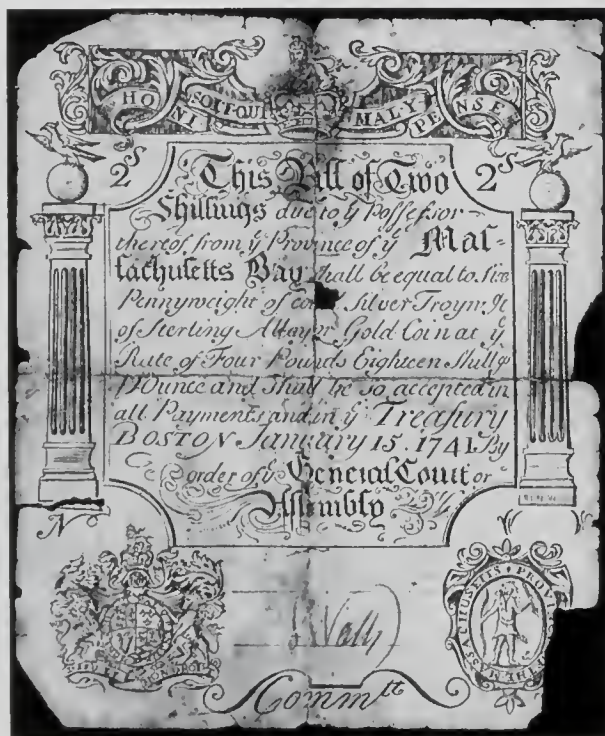 HONI SOIT QUI MAL Y PENSE
2s 2s
This Bill of Two
Shillings due to ye Possessor
thereof from ye Province of ye Mas-
sachusetts Bay shall be equal to six
Pennyweight of Silver Troy wt
of Sterling Allay or Gold Coin at ye
Rate of Four Pounds Eighteen Shillgs
Ounce and Shall be so accepted in
all Payments and in ye Treasury
BOSTON January 15. 1741. By
order of ye General Court or
Assembly
No
DIEU MON DROIT
MASSACHUSETTS PROVI
Commtt